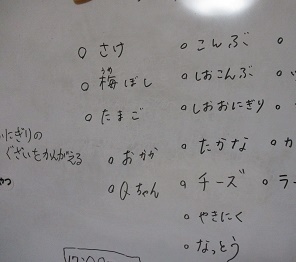 さけ
梅ぼし
うめ
たまご
おかか
Qちゃん
こんぶ
しおこんぶ
しおおにぎり
たかな
チーズ
やきにく
なっとう
ラー
にぎりの
ぐざいをかんがえる